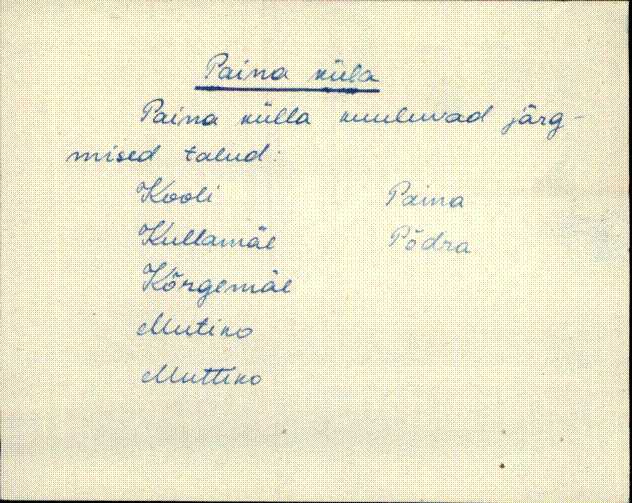 Paina küla
Paina külla kuuluvad järg-
mised talud:
Kooli Paina
Kullamäe Põdra
Kõrgemäe
Mutiko
Muttiko